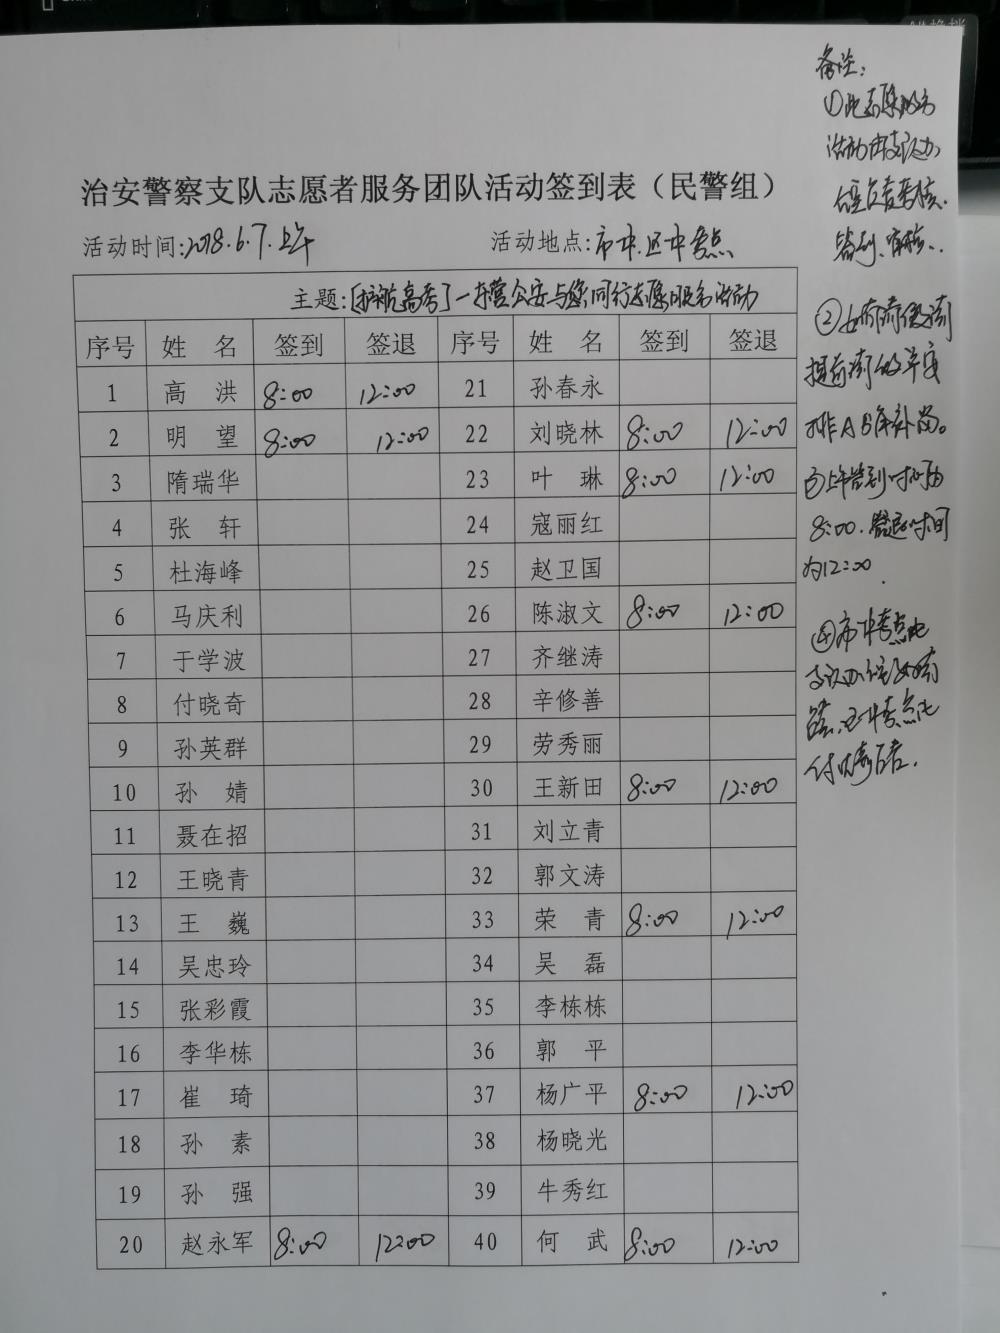 治安警察支队志愿者服务团队活动签到表（民警组）
活动时间:2018.6.7.上午 活动地点:市中.区中考点
主题:[护航高考]一东营公安与您同行志愿服务活动
序号 姓 名 签到 签退 序号 姓 名 签到 签退
1 高 洪 8:00 12:00 21 孙春永
2 明 望 8:00 12:00 22 刘晓林 8:00 12:00
3 隋瑞华 23 叶 琳 8:00 12:00
4 张 轩 24 寇丽红
5 杜海峰 25 赵卫国
6 马庆利 26 陈淑文 8:00 12:00
7 于学波 27 齐继涛
8 付晓奇 28 辛修善
9 孙英群 29 劳秀丽
10 孙 婧 30 王新田 8:00 12:00
11 聂在招 31 刘立青
12 王晓青 32 郭文涛
13 王 巍 33 荣 青 8:00 12:00
14 吴忠玲 34 吴 磊
15 张彩霞 35 李栋栋
16 李华栋 36 郭 平
17 崔 琦 37 杨广平 8:00 12:00
18 孙 素 38 杨晓光
19 孙 强 39 牛秀红
20 赵永军 8:00 12:00 40 何 武 8:00 12:00
备注:
①此志愿服务
活动由支队办
负责
签到、审核.
②如有需要
提前
A B
上午签到时间为
8:00.签退时间
为12:00.
④市中考点由
支队办
考点由